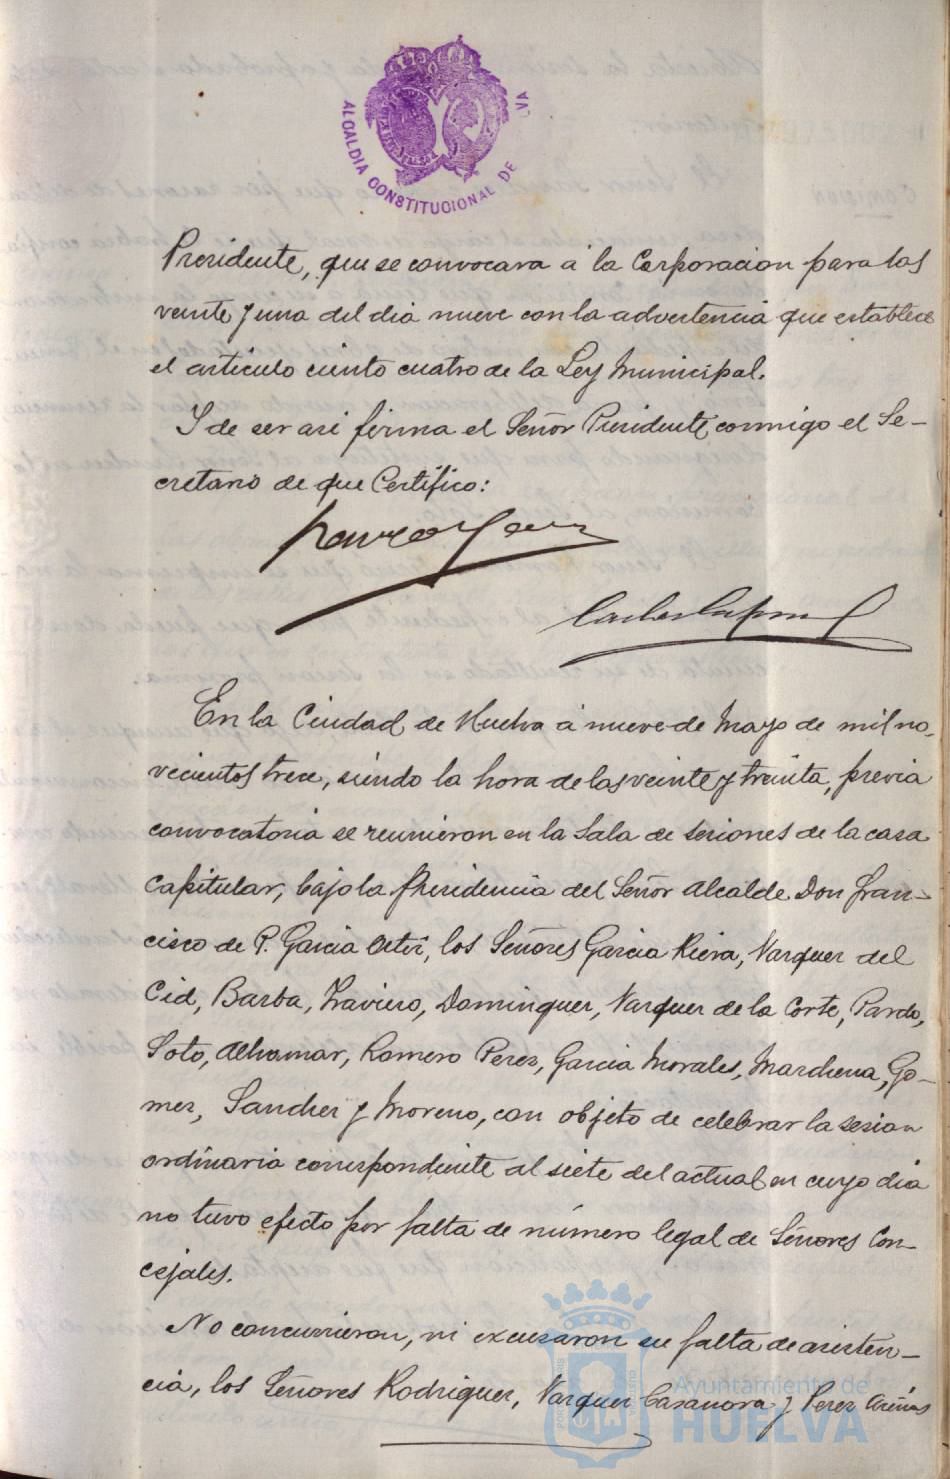 ALCALDIA CONSTITUCIONAL DE
Presidente, que se convocara á la Corporacion para las
veinte y una del dia nueve con la advertencia que establece
el articulo ciento cuatro de la Ley Municipal.
Y de ser asi firma el Señor Presidente conmigo el Se-
cretario de que Certifico:
En la Ciudad de Huelva á nueve de Mayo de mil no-
vecientos trece, siendo la hora de las veinte y treinta, previa
convocatoria se reunieron en la Sala de sesiones de la casa
Capitular, bajo la Presidencia del Señor Alcalde Don Fran-
cisco de P. Garcia los Señores Garcia Riera, Vazquez del
Cid, Barba, Traviero, Dominguez, Vazquez de la Corte, Pardo,
Soto, Alhamar, Romero Perez, Garcia Morales, Marchena, Go-
mez, Sanchez y Moreno, con objeto de celebrar la sesion
ordinaria correspondiente al siete del actual en cuyo dia
no tuvo efecto por falta de número legal de Señores Con-
cejales.
No concurrieron, ni excusaron su falta de asisten-
cia, los Señores Rodriguez, Vazquez Casanova y Perez
Ayuntamiento de
HUELVA